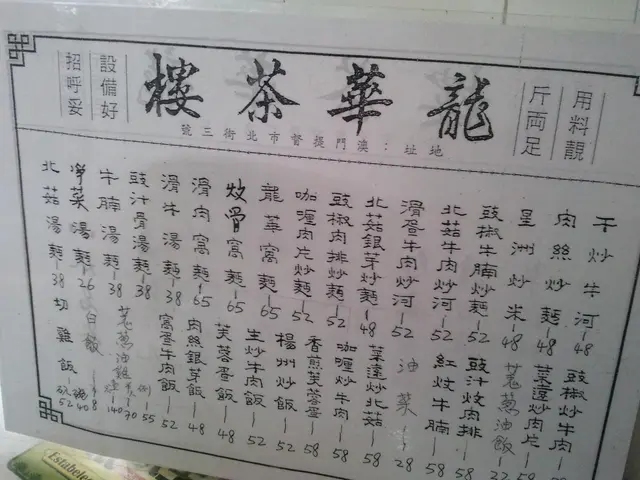 用料靚
斤両足
龍華茶樓
設備好
招呼妥
地址:澳門提督市北街三號
干炒牛河—48
肉絲炒麵—48
星洲炒米—48
豉椒牛腩炒麵—52
北菇牛肉炒河—52
滑蛋牛肉炒河—52
北菇銀芽炒麵—48
豉椒肉排炒麵—52
咖喱肉片炒麵—52
龍華窩麵—65
炆骨窩麵—65
滑肉窩麵—65
滑牛湯麵—38
豉汁骨湯麵—38
牛腩湯麵—38
淨菜湯麵—26
北菇湯麵—38
豉椒炒牛肉
菜薳炒肉片—58
羗蔥油飯
豉汁炆肉排—58
紅炆牛腩—58
油菜—28
菜薳炒北菇—58
咖喱炒牛肉—58
香煎芙蓉蛋—58
楊州炒飯—52
生炒牛肉飯—52
芙蓉蛋飯—48
肉絲銀芽飯—48
窩蛋牛肉飯—52
羗蔥油雞 例55 70 140
白飯 8
切雞飯 52
Estabele